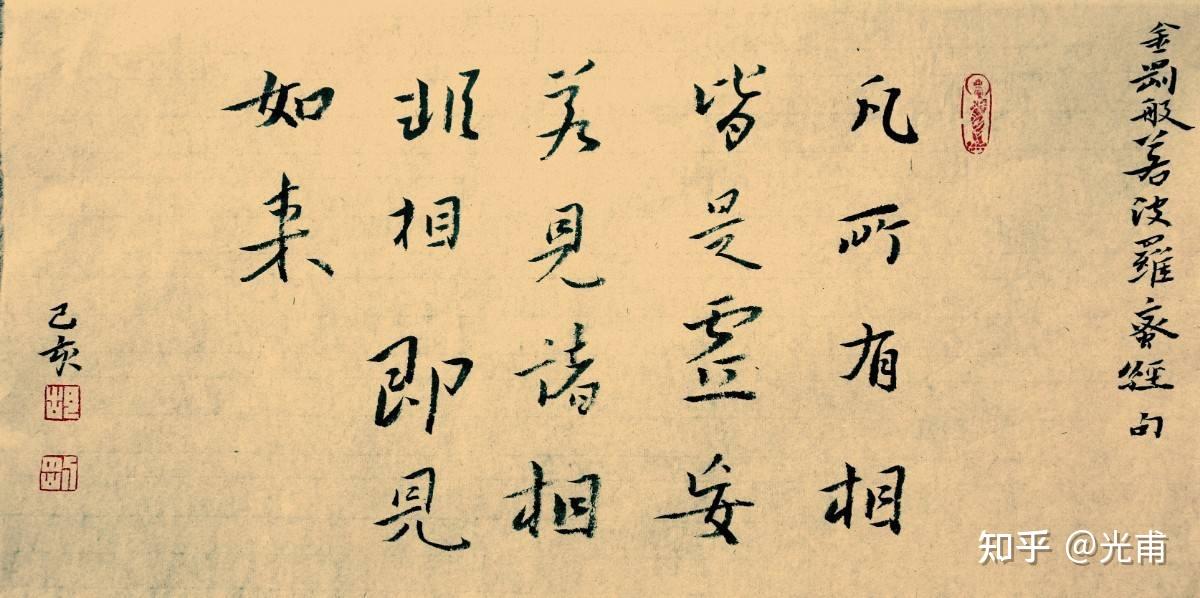 金剛般若波羅蜜經句
凡所有相
皆是虛妄
若見諸相
非相即見
如来
己亥
知乎 @光甫